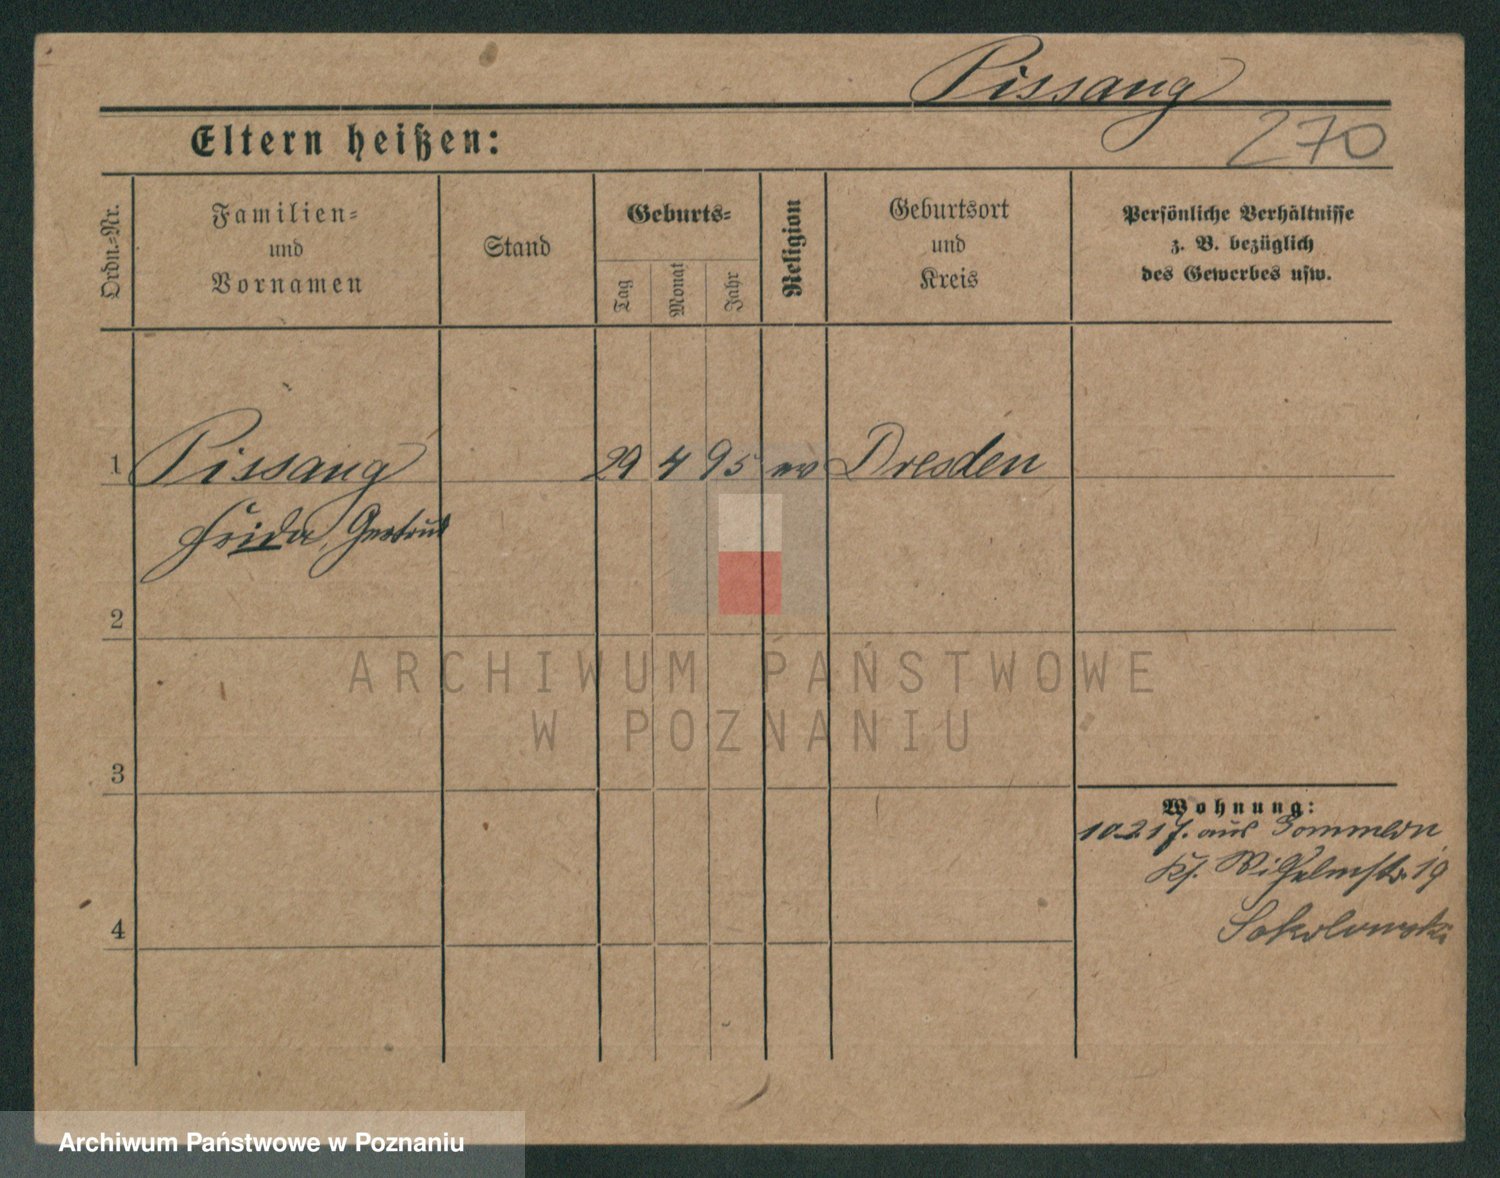 Pissang
270
Eltern heißen:
Ordn.=Nr.
Familien=
und
Vornamen
Stand
Geburts=
Tag
Monat
Jahr
Religion
Geburtsort
und
Kreis
Persönliche Verhältnisse
z. B. bezüglich
des Gewerbes usw.
1 Pissang 29 4 95 ev Dresden
Frida, Gertrud
2
3
4
Wohnung:
10.2.17. aus
Wilhelmstr. 19
Sokolowski
ARCHIWUM PAŃSTWOWE
W POZNANIU
Archiwum Państwowe w Poznaniu